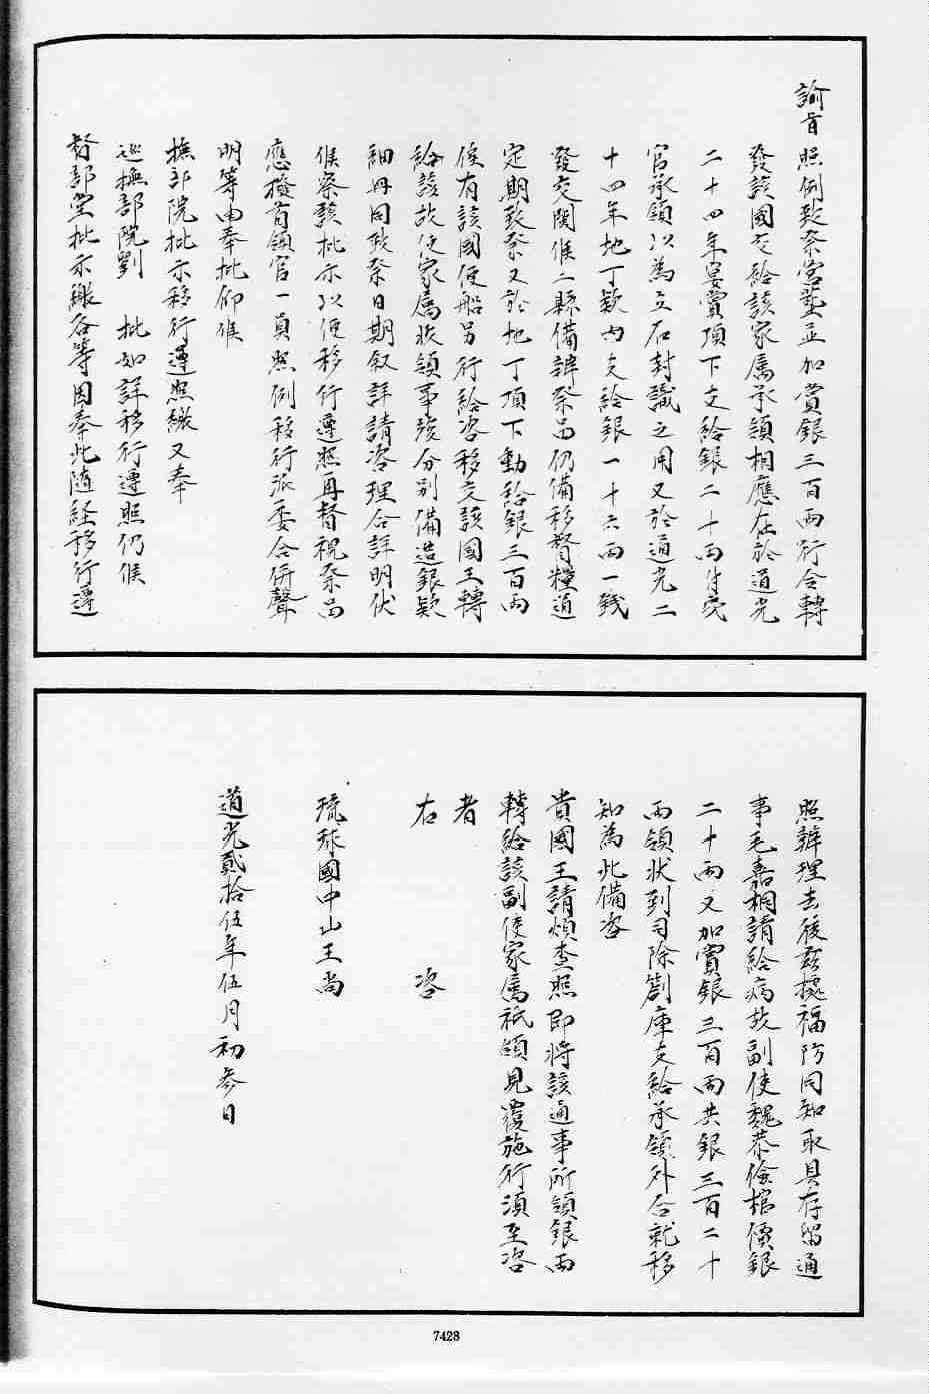 諭旨照例致祭營塋並加賞銀三百兩行令轉
發該國王給該家屬承領相應在於道光
二十四年宴賞項下支給銀二十兩付
官承領以為立石封識之用又於道光二
十四年地丁款內支給銀一十六兩一錢
發交閩候二縣備辦祭品仍備移督糧道
定期致祭又於地丁項下動給銀三百兩
俟有該國便船另行給咨移交該國王轉
給該故使家屬收領事竣分別備造銀款
細冊同致祭日期叙詳請咨理合詳明伏
候察該批示以便移行遵照再督視祭品
應揀首領官一員照例移行派委合併聲
明等由奉批仰候
撫部院批示移行遵照繳又奉
巡撫部院劉 批如詳移行遵照仍候
督部堂批示繳各等因奉此隨經移行遵
照辦理去後茲據福防同知取具存留通
事毛嘉桐請給病故副使魏恭儉棺價銀
二十兩又加賞銀三百兩共銀三百二十
兩領狀到司除劄庫支給承領外合就移
知為此備咨
貴國王請煩查照即將該通事所領銀兩
轉給該副使家屬祇領見覆施行須至咨
者
右 咨
琉球國中山王尚
道光貳拾伍年伍月初叄日
7428